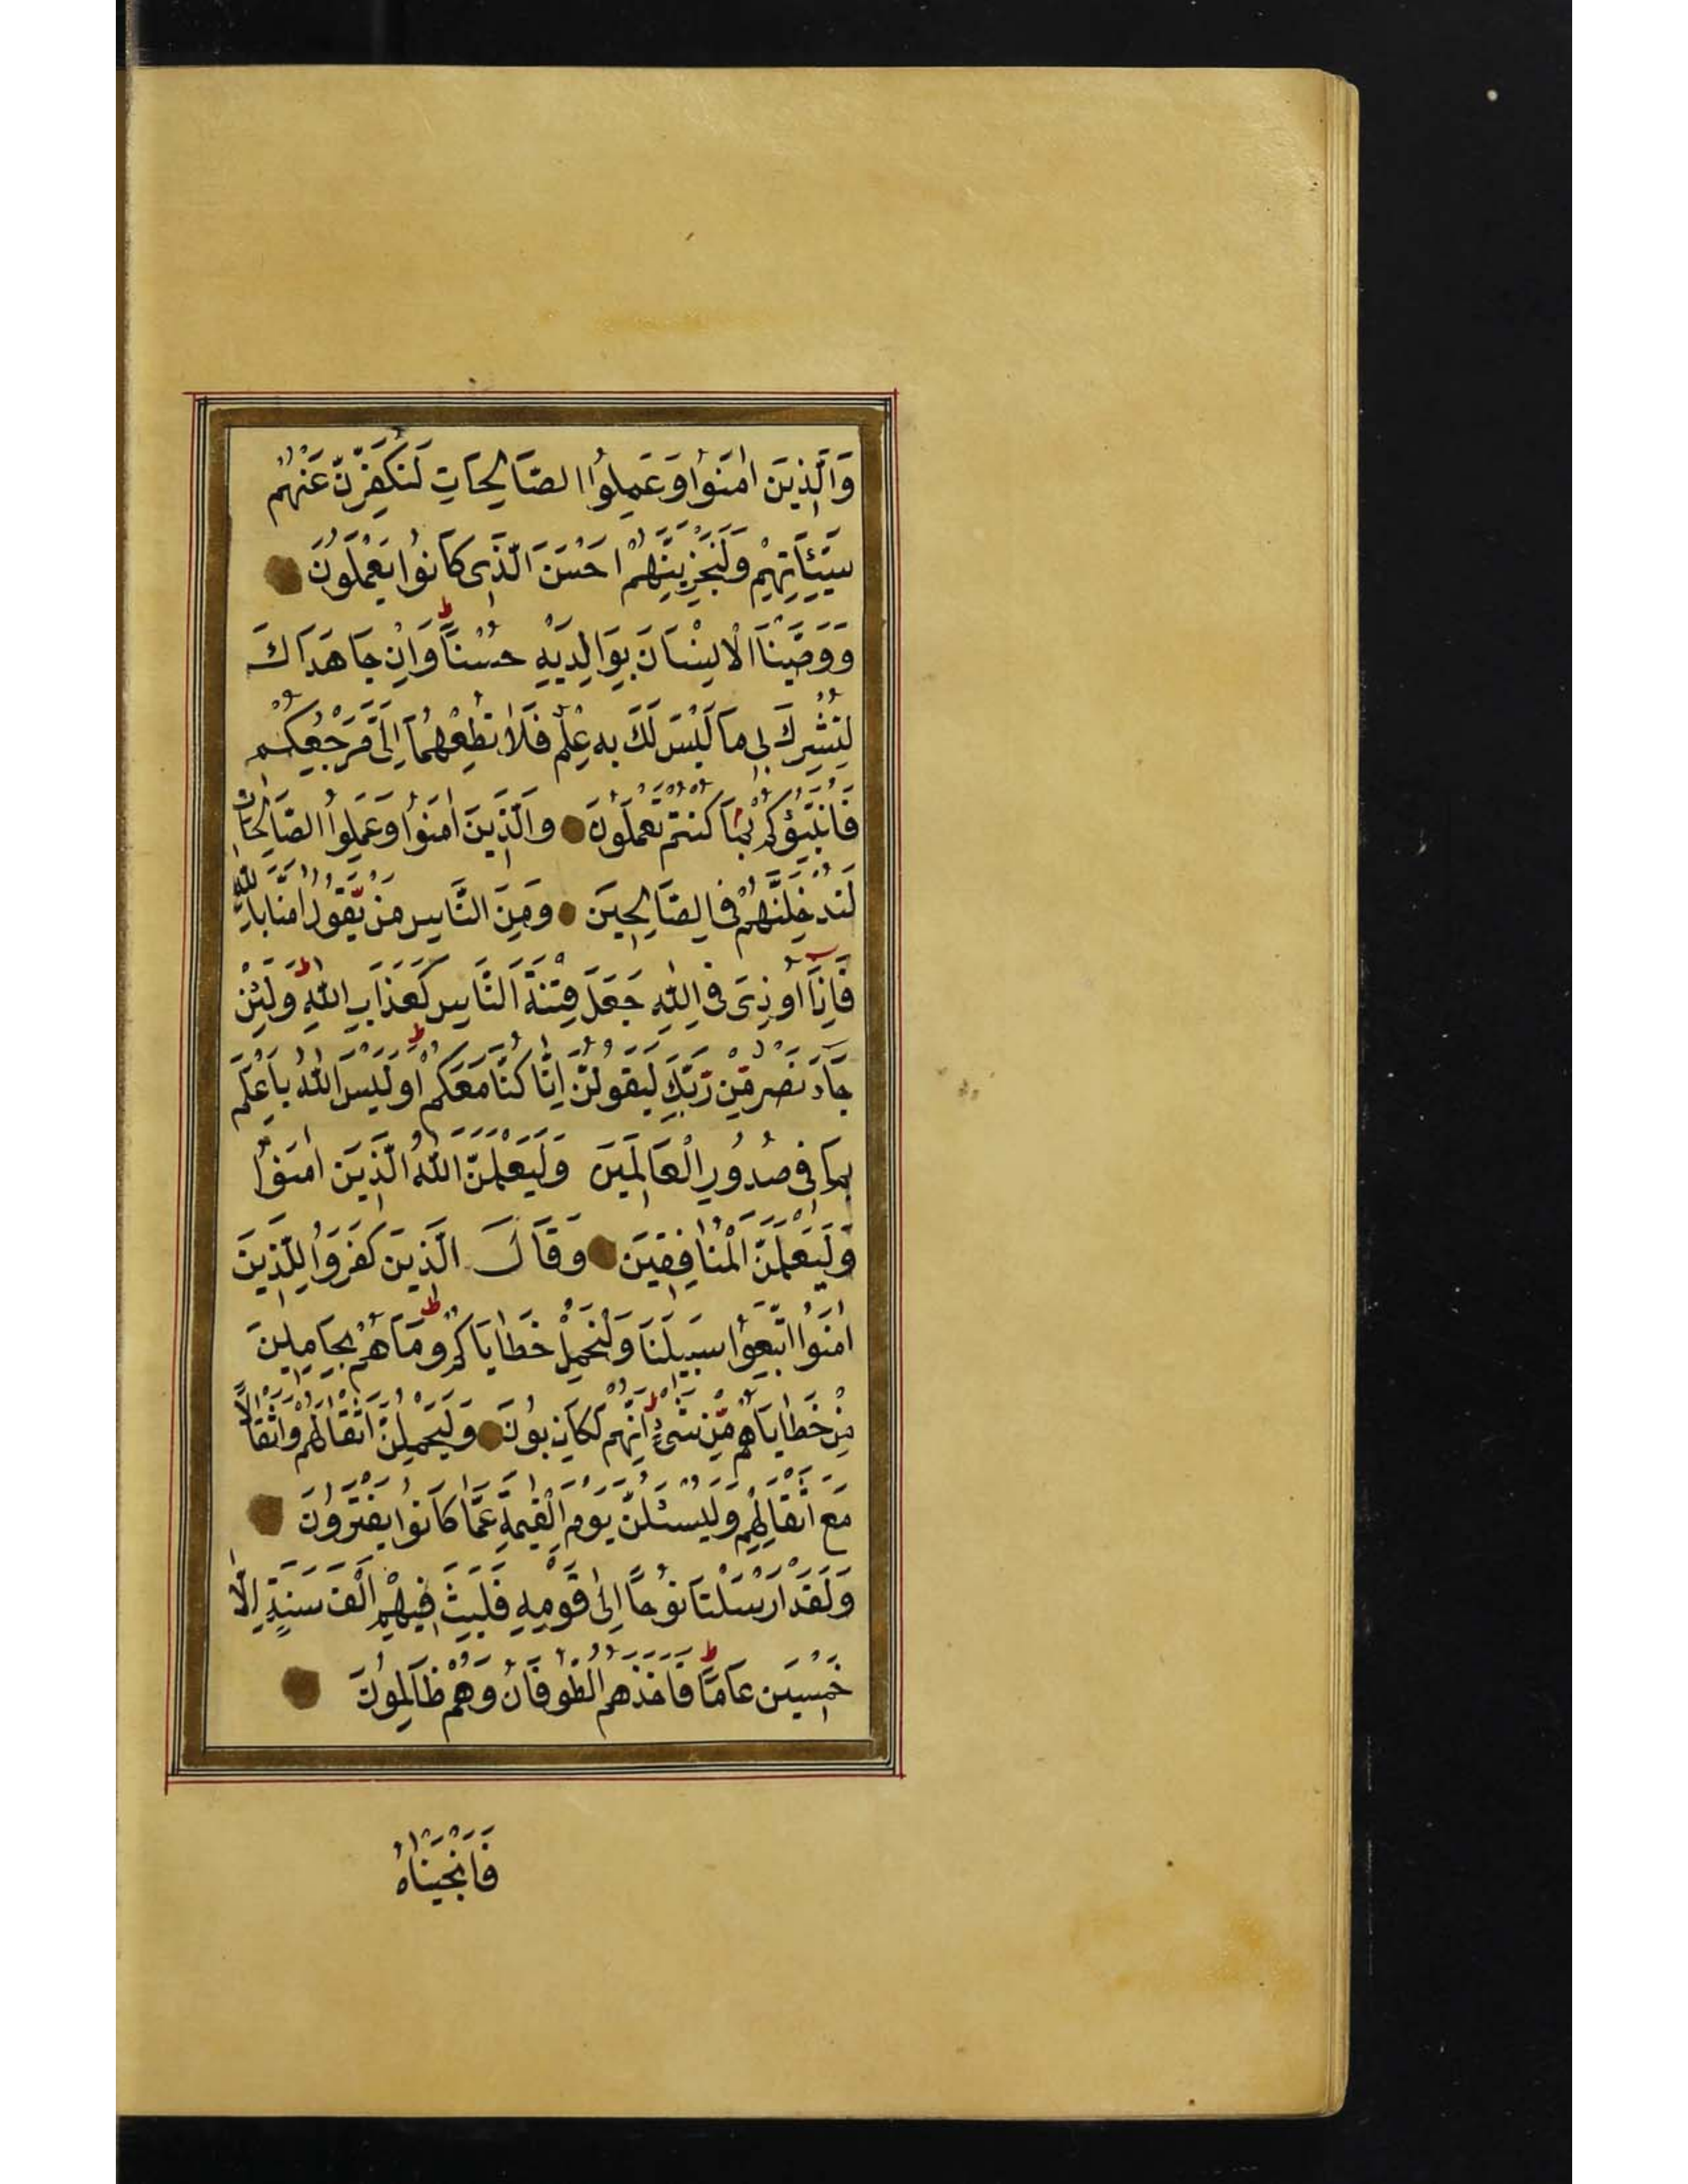 وَالَّذِينَ اٰمَنُوا وَعَمِلُوا الصَّالِحَاتِ لَنُكَفِّرَنَّ عَنْهُمْ
سَيِّئَاتِهِمْ وَلَنَجْزِيَنَّهُمْ اَحْسَنَ الَّذِى كَانُوا يَعْمَلُونَ
وَوَصَّيْنَا الْاِنْسَانَ بِوَالِدَيْهِ حُسْنًا ط وَاِنْ جَاهَدَاكَ
لِتُشْرِكَ بِى مَا لَيْسَ لَكَ بِهِ عِلْمٌ فَلَا تُطِعْهُمَا اِلَىَّ مَرْجِعُكُمْ
فَاُنَبِّؤُكُمْ بِمَا كُنْتُمْ تَعْمَلُونَ وَالَّذِينَ اٰمَنُوا وَعَمِلُوا الصَّالِحَاتِ
لَنُدْخِلَنَّهُمْ فِى الصَّالِحِينَ وَمِنَ النَّاسِ مَنْ يَقُولُ اٰمَنَّا بِاللّٰهِ
فَاِذَا اُوذِىَ فِى اللّٰهِ جَعَلَ فِتْنَةَ النَّاسِ كَعَذَابِ اللّٰهِ ط وَلَئِنْ
جَآءَ نَصْرٌ مِنْ رَبِّكَ لَيَقُولُنَّ اِنَّا كُنَّا مَعَكُمْ ط اَوَلَيْسَ اللّٰهُ بِاَعْلَمَ
بِمَا فِى صُدُورِ الْعَالَمِينَ وَلَيَعْلَمَنَّ اللّٰهُ الَّذِينَ اٰمَنُوا
وَلَيَعْلَمَنَّ الْمُنَافِقِينَ وَقَالَ الَّذِينَ كَفَرُوا لِلَّذِينَ
اٰمَنُوا اتَّبِعُوا سَبِيلَنَا وَلْنَحْمِلْ خَطَايَاكُمْ ط وَمَا هُمْ بِحَامِلِينَ
مِنْ خَطَايَاهُمْ مِنْ شَىْءٍ ط اِنَّهُمْ لَكَاذِبُونَ وَلَيَحْمِلُنَّ اَثْقَالَهُمْ وَاَثْقَالًا
مَعَ اَثْقَالِهِمْ وَلَيُسْئَلُنَّ يَوْمَ الْقِيٰمَةِ عَمَّا كَانُوا يَفْتَرُونَ
وَلَقَدْ اَرْسَلْنَا نُوحًا اِلٰى قَوْمِهِ فَلَبِثَ فِيهِمْ اَلْفَ سَنَةٍ اِلَّا
خَمْسِينَ عَامًا ط فَاَخَذَهُمُ الطُّوفَانُ وَهُمْ ظَالِمُونَ
فَاَنْجَيْنَاهُ